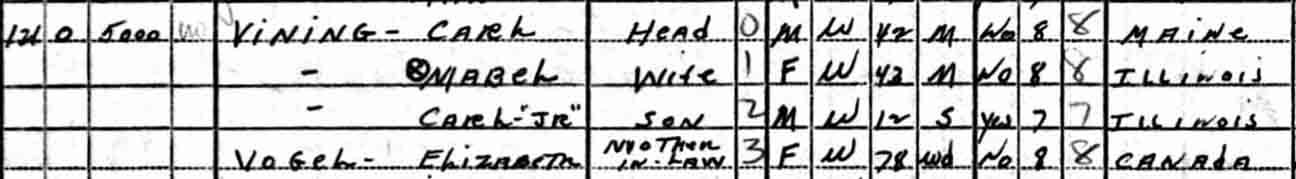 121 0 5000 no VINING - CARL Head 0 M W 42 M No 8 8 MAINE
- ⊗ MABEL Wife 1 F W 42 M No 8 8 ILLINOIS
- CARL-"JR" SON 2 M W 12 S Yes 7 7 ILLINOIS
VOGEL - ELIZABETH MOTHER IN-LAW 3 F W 78 Wd No 8 8 CANADA